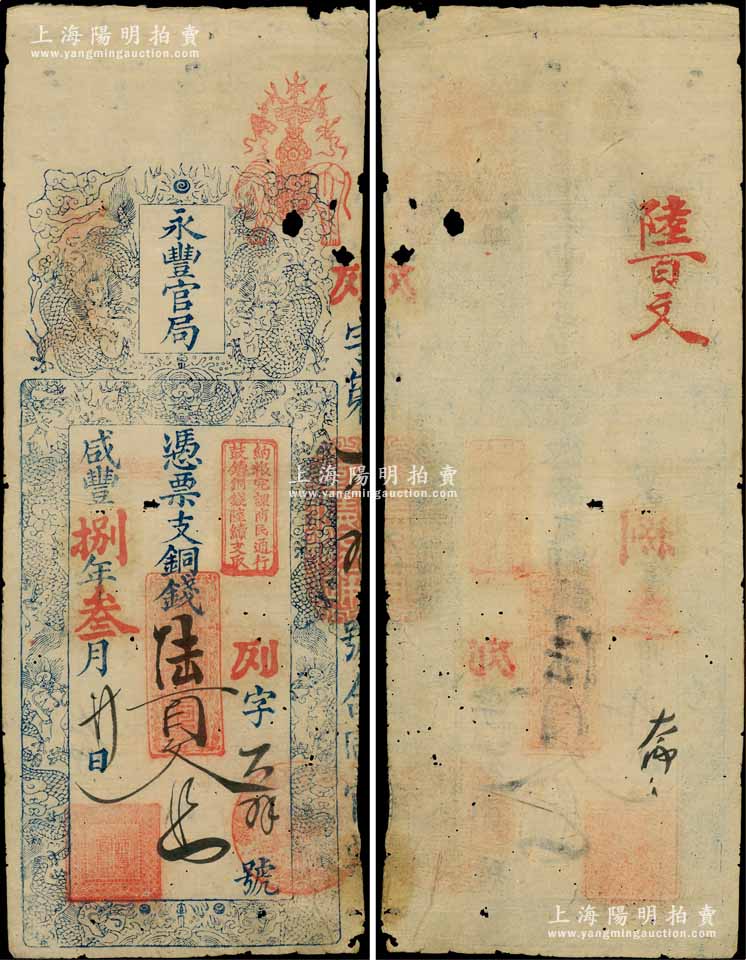 上海陽明拍賣
www.yangmingauction.com
上海陽明拍賣
www.yangmingauction.com
永豐官局
列字第
號
納糧完課商民通行
鼓鑄銅錢陸續支取
列字
號
憑票支銅錢陸百文
咸豐捌年叁月廿日
陸百文
上海陽明拍賣
www.yangmingauction.com
上海陽明拍賣
www.yangmingauction.com